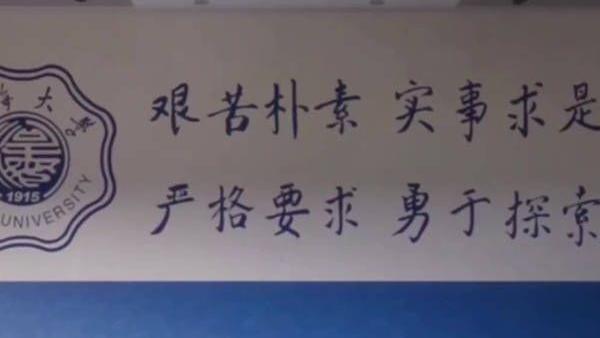 大
1915
UNIVERSITY
艰苦朴素 实事求是
严格要求 勇于探索